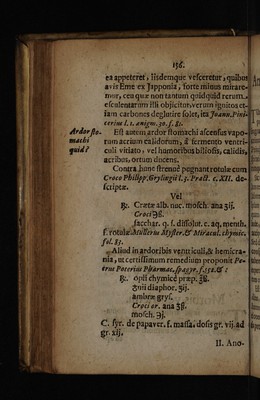 156.
ea appeteret, iisdemque vesceretur, quibus
avis Eme ex Japponia, forte minus mirare-
mur, ceu quæ non tantum quidquid rerum
esculentarum illi objicitur, verum ignitos et-
iam carbones deglutire solet, ita Joann. Pini-
cerius l. 1. ænigm. 30. f. 81.
Ardor sto-
machi
quid?
Est autem ardor stomachi ascensus vapo-
rum acrium calidorum, à fermento ventri-
culi vitiato, vel humoribus biliosis, calidis,
acribus, ortum ducens.
Contra hunc strenuè pugnant rotulæ cum
Croco Philipp. Grylingii l. 5. Pract. c. XII. de-
scriptæ.
Vel
℞. Cretæ alb. nuc. mosch. ana ʒij.
Croci ℈ß.
sacchar. q. s. dissolut. e. aq. menth.
f. rotulæ Mullerus Myster. & Miracul. chymic.
fol. 83.
Aliud in ardoribus ventriculi, & hemicra-
nia, ut certissimum remedium proponit Pe-
trus Poterius Pharmac. spagyr. f. 552. &:
℞. opii chymicè præp. ℥ß.
diaphor. ʒij.
ambræ grys.
Croci or. ana ʒß.
mosch. ℈j.
C. syr. de papaver. f. massa. dosis gr. vij. ad
gr. xij.
II. Ano-